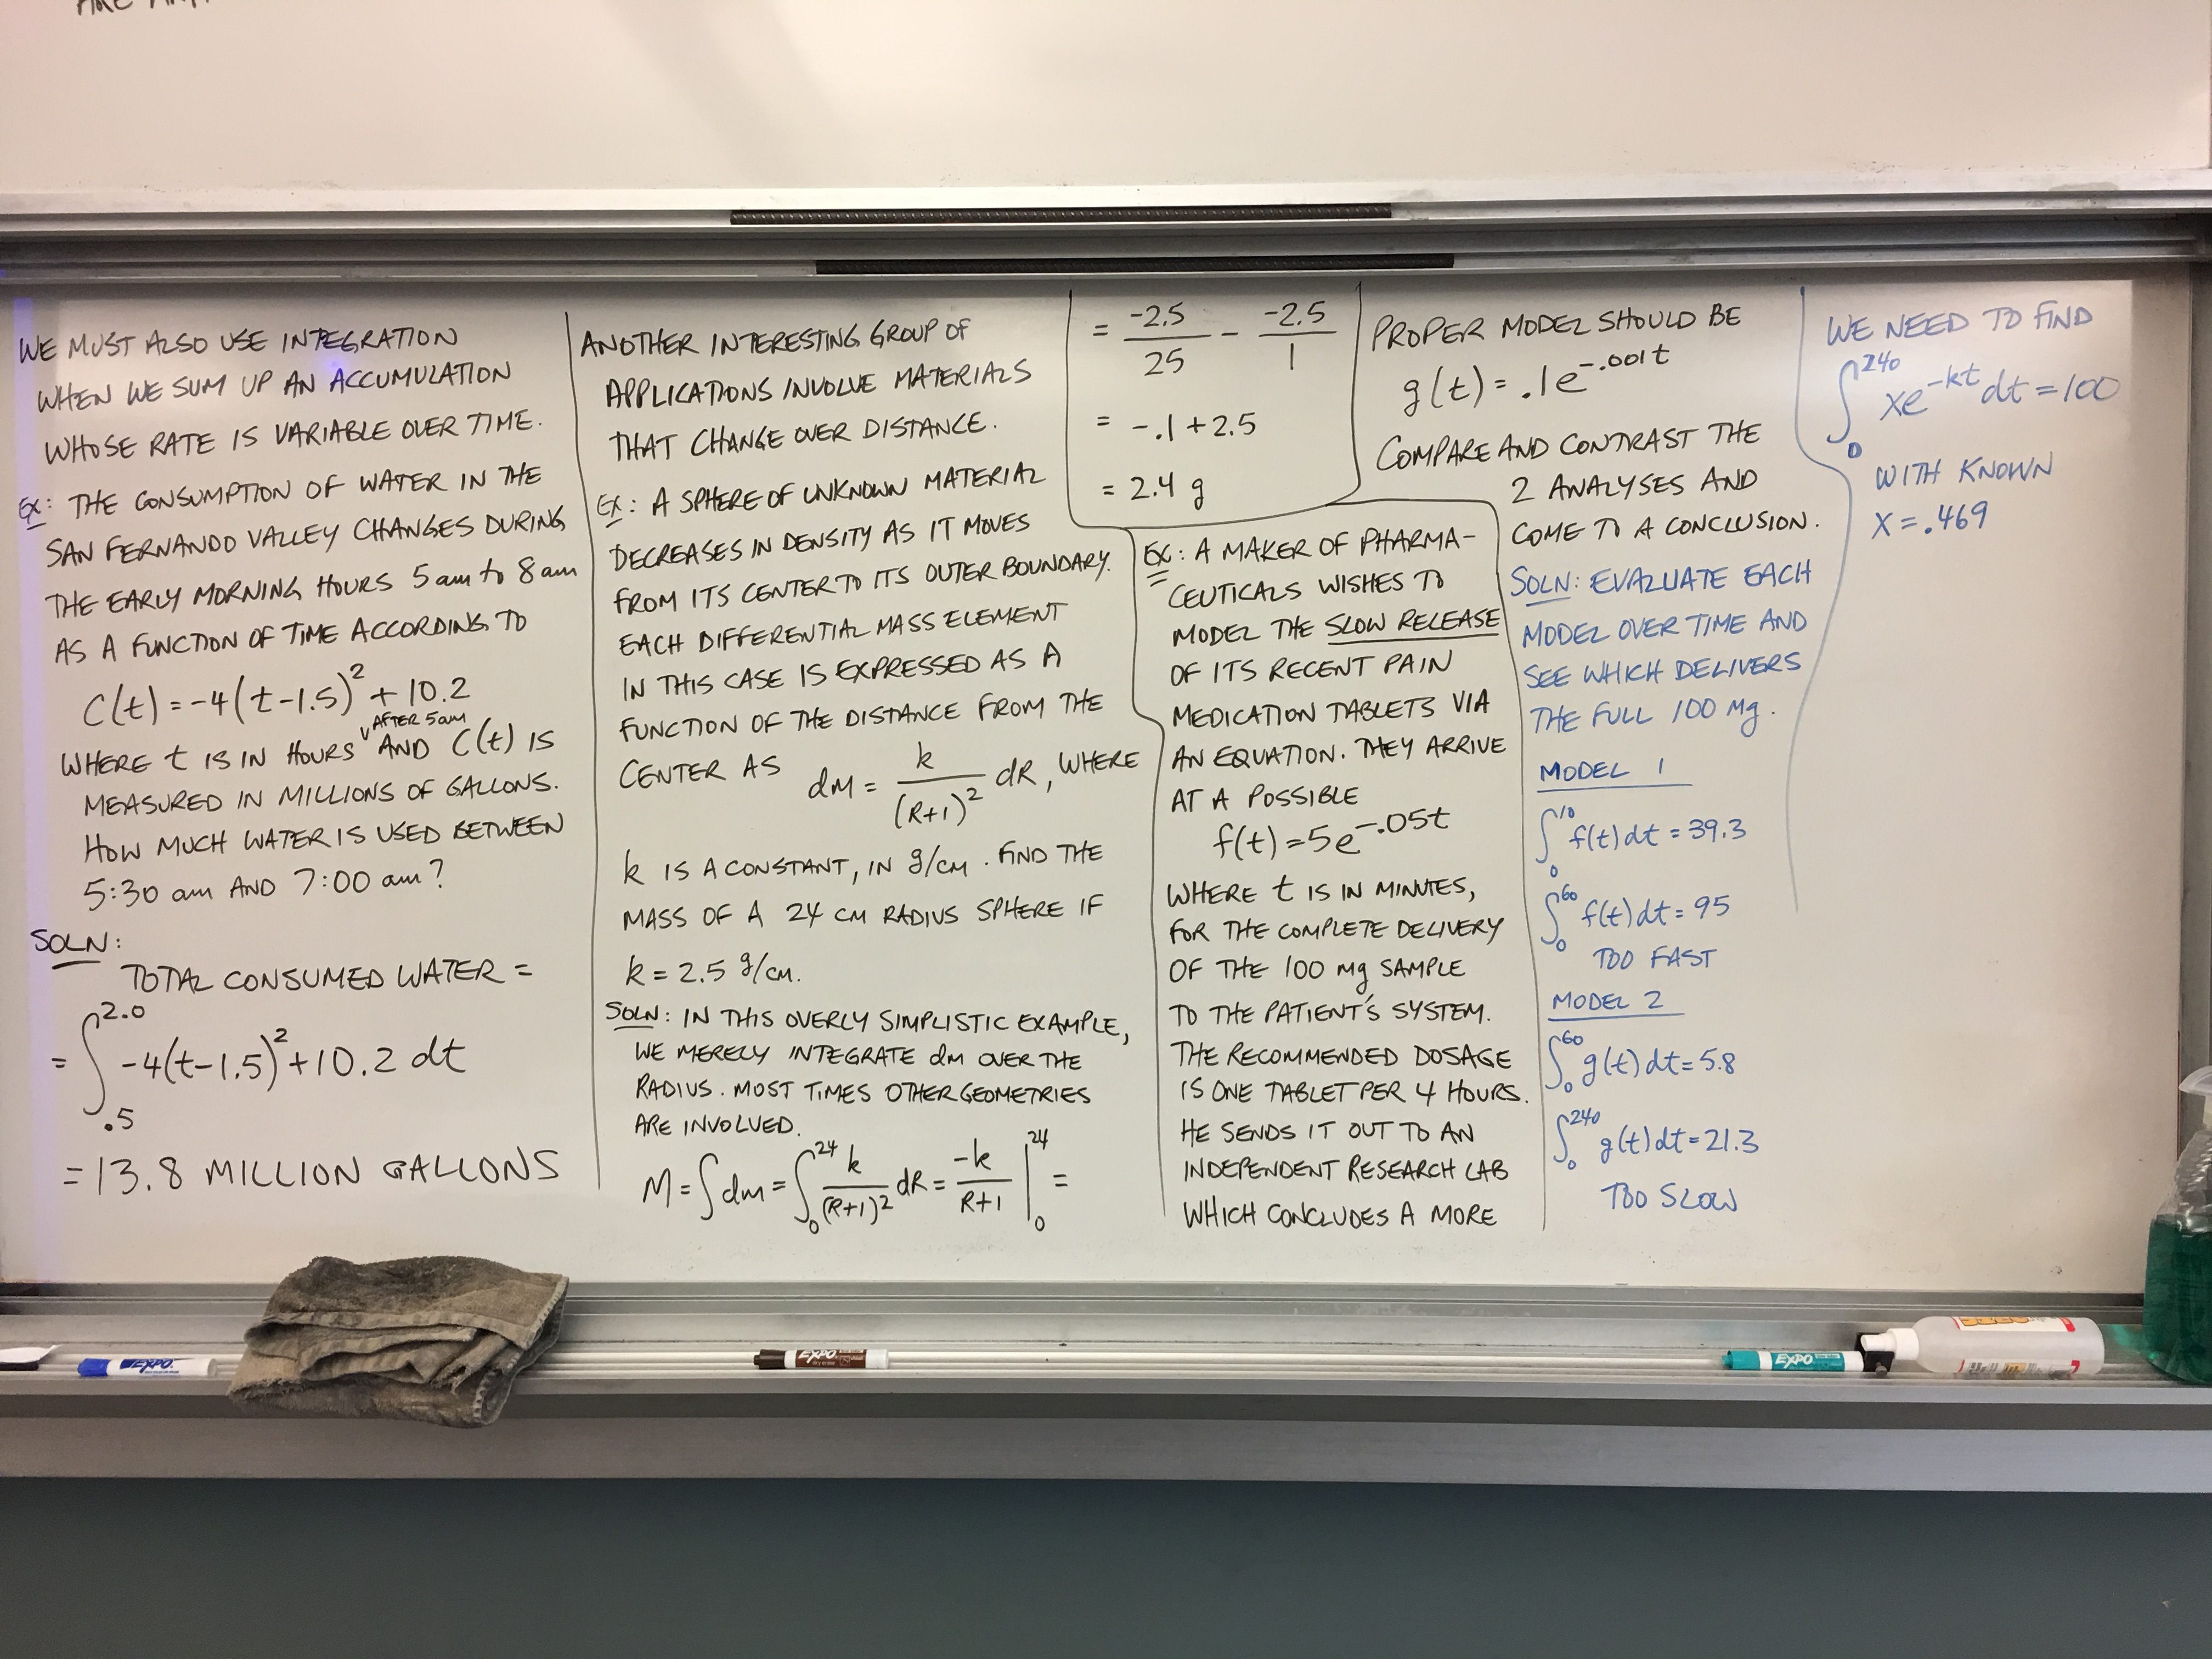 WE MUST ALSO USE INTEGRATION
WHEN WE SUM UP AN ACCUMULATION
WHOSE RATE IS VARIABLE OVER TIME.
EX: THE CONSUMPTION OF WATER IN THE
SAN FERNANDO VALLEY CHANGES DURING
THE EARLY MORNING HOURS 5am to 8am
AS A FUNCTION OF TIME ACCORDING TO
C(t) = -4(t-1.5)² + 10.2
AFTER 5am
WHERE t IS IN HOURS ∨ AND C(t) IS
MEASURED IN MILLIONS OF GALLONS.
HOW MUCH WATER IS USED BETWEEN
5:30 am AND 7:00 am?
SOLN:
TOTAL CONSUMED WATER =
= ∫_.5^2.0 -4(t-1.5)² + 10.2 dt
= 13.8 MILLION GALLONS
ANOTHER INTERESTING GROUP OF
APPLICATIONS INVOLVE MATERIALS
THAT CHANGE OVER DISTANCE.
EX: A SPHERE OF UNKNOWN MATERIAL
DECREASES IN DENSITY AS IT MOVES
FROM ITS CENTER TO ITS OUTER BOUNDARY.
EACH DIFFERENTIAL MASS ELEMENT
IN THIS CASE IS EXPRESSED AS A
FUNCTION OF THE DISTANCE FROM THE
CENTER AS dM = k/(R+1)² dR, WHERE
k IS A CONSTANT, IN g/cm. FIND THE
MASS OF A 24 CM RADIUS SPHERE IF
k = 2.5 g/cm.
SOLN: IN THIS OVERLY SIMPLISTIC EXAMPLE,
WE MERELY INTEGRATE dm OVER THE
RADIUS. MOST TIMES OTHER GEOMETRIES
ARE INVOLVED.
M = ∫dm = ∫_0^24 k/(R+1)² dR = -k/(R+1) |_0^24 =
= -2.5/25 - -2.5/1
= -.1 + 2.5
= 2.4 g
EX: A MAKER OF PHARMA-
CEUTICALS WISHES TO
MODEL THE SLOW RELEASE
OF ITS RECENT PAIN
MEDICATION TABLETS VIA
AN EQUATION. THEY ARRIVE
AT A POSSIBLE
f(t) = 5e^-.05t
WHERE t IS IN MINUTES,
FOR THE COMPLETE DELIVERY
OF THE 100 mg SAMPLE
TO THE PATIENT'S SYSTEM.
THE RECOMMENDED DOSAGE
IS ONE TABLET PER 4 HOURS.
HE SENDS IT OUT TO AN
INDEPENDENT RESEARCH LAB
WHICH CONCLUDES A MORE
PROPER MODEL SHOULD BE
g(t) = .1e^-.001t
COMPARE AND CONTRAST THE
2 ANALYSES AND
COME TO A CONCLUSION.
SOLN: EVALUATE EACH
MODEL OVER TIME AND
SEE WHICH DELIVERS
THE FULL 100 mg.
MODEL 1
∫_0^10 f(t) dt = 39.3
∫_0^60 f(t) dt = 95
TOO FAST
MODEL 2
∫_0^60 g(t) dt = 5.8
∫_0^240 g(t) dt = 21.3
TOO SLOW
WE NEED TO FIND
∫_0^240 xe^-kt dt = 100
WITH KNOWN
X = .469
EXPO
EXPO
EXPO